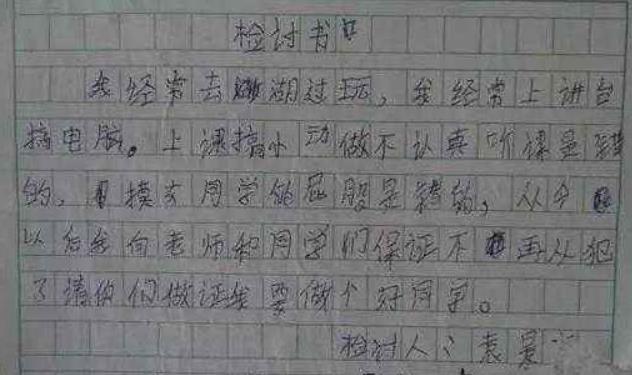 检讨书
我经常去湖过玩，我经常上讲台
搞电脑。上课搞小动做不认真听课是错
的，摸女同学的屁股是错的，从今
以后我向老师和同学们保证不再从犯
了请你们做证我要做个好同学。
检讨人：袁